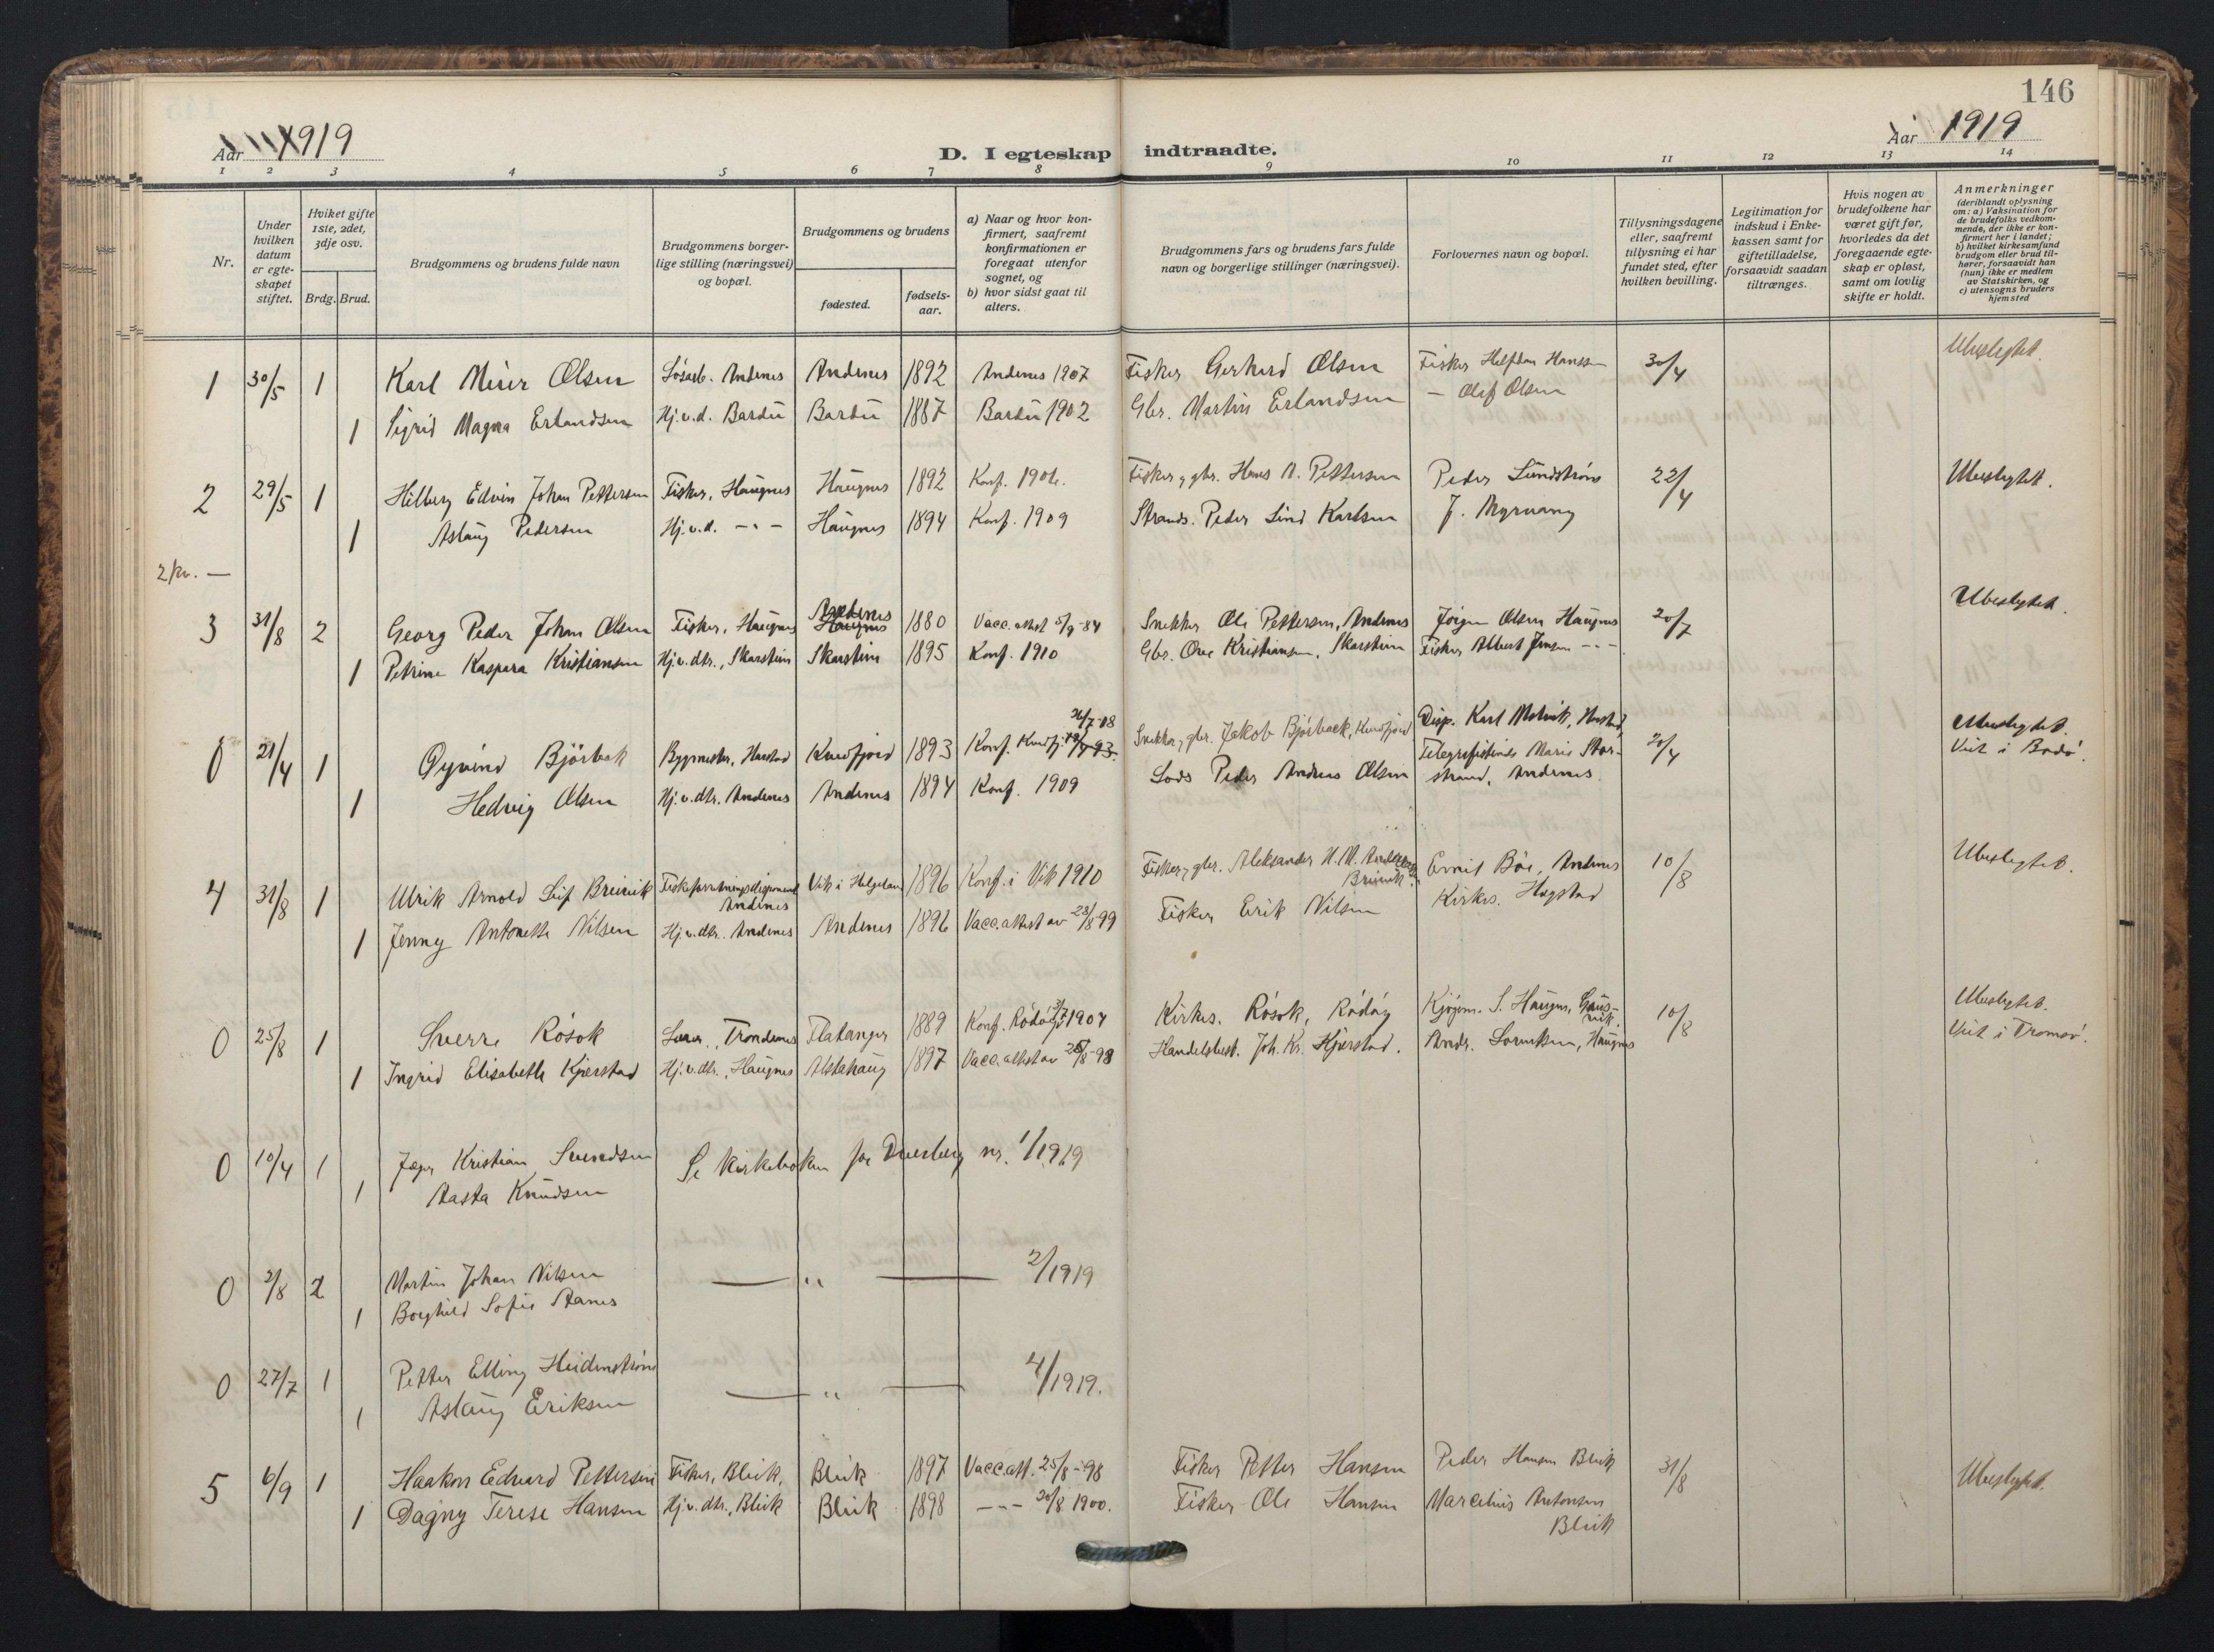 146
Aar 1919
D. I egteskap indtraadte.
Aar 1919
1 2 3 4 5 6 7 8 9 10 11 12 13 14
Nr.
Under hvilken datum er egteskapet stiftet.
Hviket gifte 1ste, 2det, 3dje osv.
Brdg. Brud.
Brudgommens og brudens fulde navn
Brudgommens borgerlige stilling (næringsvei) og bopæl.
Brudgommens og brudens
fødested.
fødsels-aar.
a) Naar og hvor konfirmert, saafremt konfirmationen er foregaat utenfor sognet, og
b) hvor sidst gaat til alters.
Brudgommens fars og brudens fars fulde navn og borgerlige stillinger (næringsvei).
Forlovernes navn og bopæl.
Tillysningsdagene eller, saafremt tillysning ei har fundet sted, efter hvilken bevilling.
Legitimation for indskud i Enkekassen samt for giftetilladelse, forsaavidt saadan tiltrænges.
Hvis nogen av brudefolkene har været gift før, hvorledes da det foregaaende egteskap er opløst, samt om lovlig skifte er holdt.
Anmerkninger (deriblandt oplysning om: a) Vaksination for de brudefolks vedkommende, der ikke er konfirmert her i landet; b) hvilket kirkesamfund brudgom eller brud tilhører, forsaavidt han (hun) ikke er medlem av Statskirken, og c) utensogns bruders hjemsted
1 30/5 1 Karl Meier Olsen Løsarb. Andenes Andenes 1892 Andenes 1907 Fisker Gerhard Olsen Fisker Halfdan Hanssen 30/4 Ubeslegtet.
1 Sigrid Magna Erlandsen Hj.v.d. Bardu Bardu 1887 Bardu 1902 Gbr. Martin Erlandsen – Olaf Olsen
2 29/5 1 Hilberg Edvin Johan Pettersen Fisker, Haugnes Haugnes 1892 Konf. 1906. Fisker, gbr. Hans A. Pettersen Peder Lundstrøm 22/4 Ubeslegtet.
1 Aslaug Pedersen Hj.v.d. –"– Haugnes 1894 Konf. 1909 Strands. Peder Lind Karlsen J. Myrvang
2 kv. —
3 31/8 2 Georg Peder Johan Olsen Fisker, Haugnes Andenes 1880 Vacc. attest 5/9-84 Snekker Ole Pettersen, Andenes Jørgen Olsen Haugnes 20/7 Ubeslegtet.
1 Petrine Kaspara Kristiansen Hj.v.dtr., Skarstein Skarstein 1895 Konf. 1910 Gbr. Ove Kristiansen, Skarstein Fisker Albert Jensen –"–
0 21/4 1 Øyvind Bjørbæk Bygmester, Harstad Kvæfjord 1893 Konf. Kvæfj. 26/7-08 Snekker, gbr. Jakob Bjørbæk, Kvæfjord Disp. Karl Molvik, Harstad, 20/4 Ubeslegtet.
Viet i Bodø.
1 Hedvig Olsen Hj.v.dtr. Andenes Andenes 1894 Konf. 1909 Lods Peder Andreas Olsen Telegrafistinde Marie Storstrand, Andenes.
4 31/8 1 Ulrik Arnold Leif Breivik Andenes Vik i Helgeland 1896 Konf. i Vik 1910 Fisker, gbr. Aleksander H. M. Breivik Ernst Bøe, Andenes 10/8 Ubeslegtet.
1 Jenny Antonette Nilsen Hj.v.dtr. Andenes Andenes 1896 Vacc. attest av 23/8 99 Fisker Erik Nilsen Kirkes. Hagstad
0 25/8 1 Sverre Røsok Lærer, Trondenes Flatanger 1889 Konf. Rødøy 3/7 1904 Kirkes. Røsok, Rødøy Kjøpm. S. Haugnes, Gausvik. 10/8 Ubeslegtet.
Viet i Tromsø.
1 Ingrid Elisabeth Kjerstad Hj.v.dtr., Haugnes Alstahaug 1897 Vacc. attest av 25/8-98 Handelsbest. Joh. Kr. Kjerstad. Andr. Lorentsen, Haugnes
0 10/4 1 Jæger Kristian Svendsen Se kirkeboken for Dverberg nr. 1/1919
1 Aasta Knudsen
0 2/8 2 Martin Johan Nilsen — " — 2/1919
1 Borghild Sofie Aanes
0 27/7 1 Petter Elling Heidenstrøm — " — 4/1919.
1 Aslaug Eriksen
5 6/9 1 Haakon Edvard Pettersen Fisker, Bleik, Bleik 1897 Vacc. att. 25/8-98 Fisker Petter Hansen Peder Hansen Bleik 31/8 Ubeslegtet.
1 Dagny Terese Hansen Hj.v.dtr., Bleik Bleik 1898 –"– 20/8 1900. Fisker Ole Hansen Marcelius Antonsen Bleik